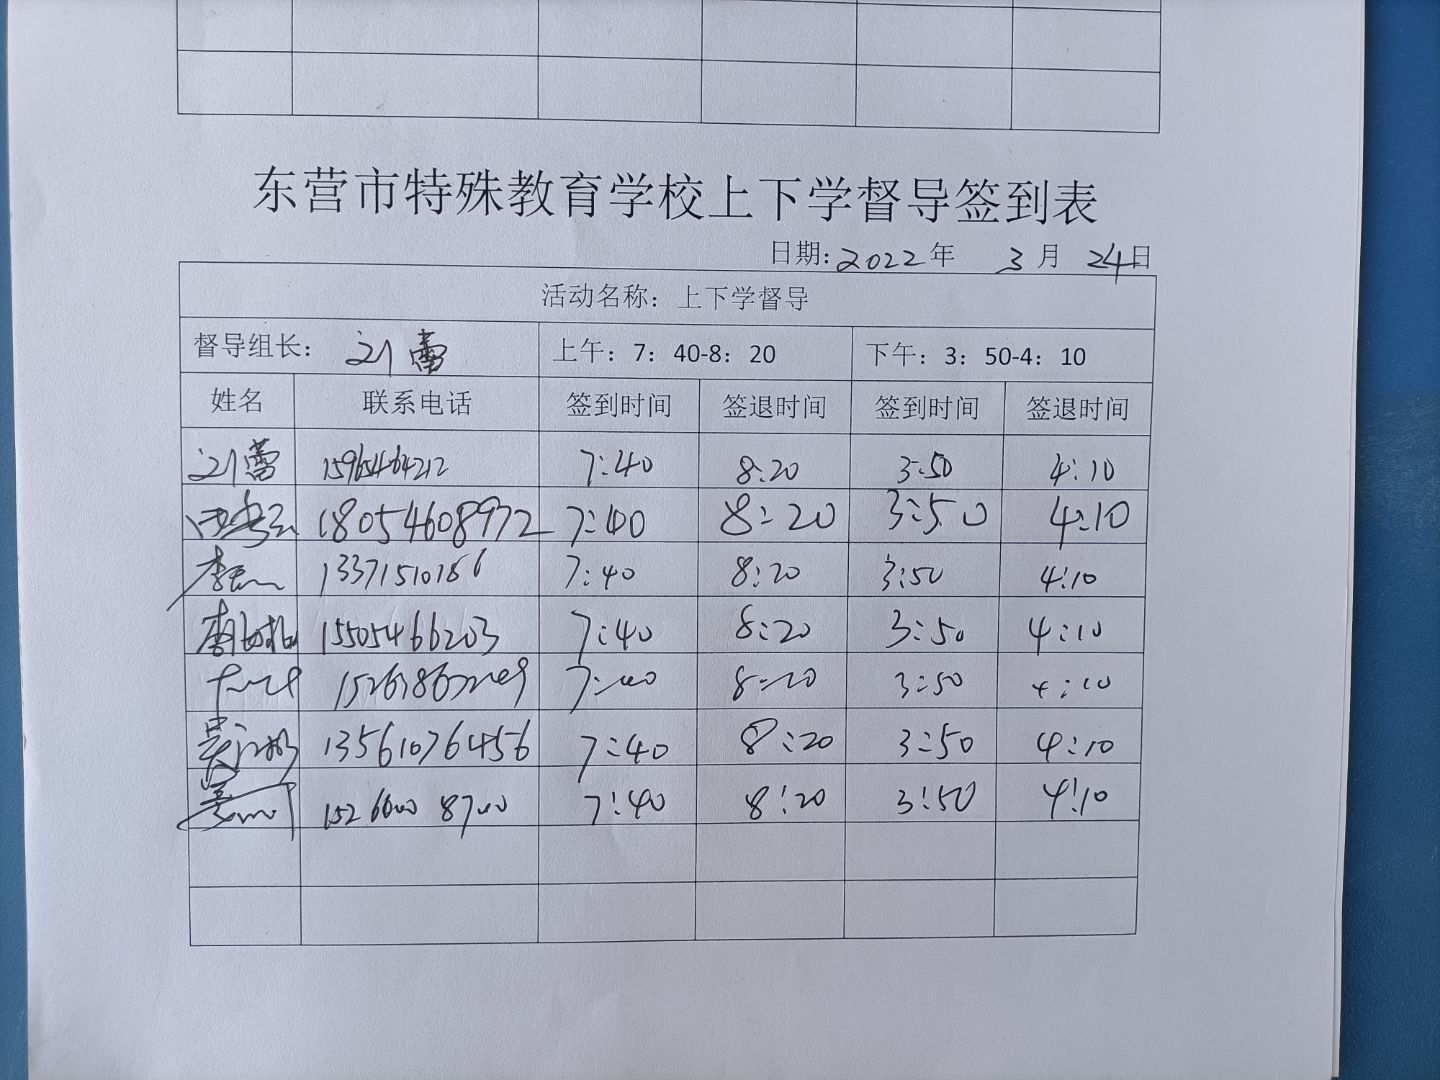 东营市特殊教育学校上下学督导签到表
日期:2022年 3月 24日
活动名称：上下学督导
督导组长： 刘蕾 上午：7：40-8：20 下午：3：50-4：10
姓名 联系电话 签到时间 签退时间 签到时间 签退时间
刘蕾 15965464212 7:40 8:20 3:50 4:10
18054608972 7:40 8:20 3:50 4:10
13371510166 7:40 8:20 3:50 4:10
15505466203 7:40 8:20 3:50 4:10
7:40 8:20 3:50 4:10
13561076456 7:40 8:20 3:50 4:10
7:40 8:20 3:50 4:10